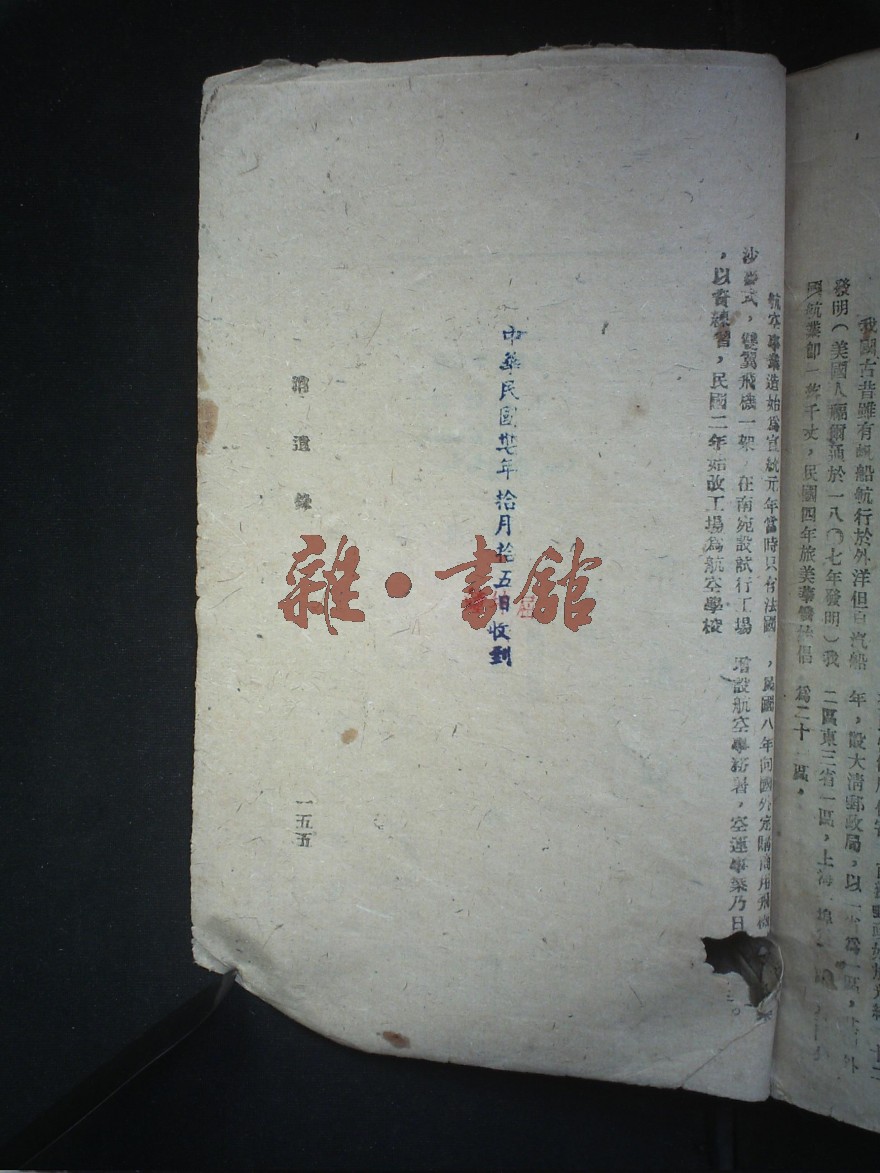 我國古昔雖有帆船航行於外洋但自汽船
發明（美國人福爾頓於一八〇七年發明）我
國航業即一落千丈，民國四年旅美華僑
年，設大清郵政局，以一省為一區，
二區東三省一區，上海
為二十一區，
航空事業造始為宣統元年當時只有法國
沙麥式，雙翼飛機一架，在南宛設試行工場
，以資練習，民國二年始改工場為航空學校
，民國八年向國外定購商用飛機
增設航空事務署，空運事業乃日
中華民國廿七年拾月拾五日收到
遺錄
一五五
雜·書館